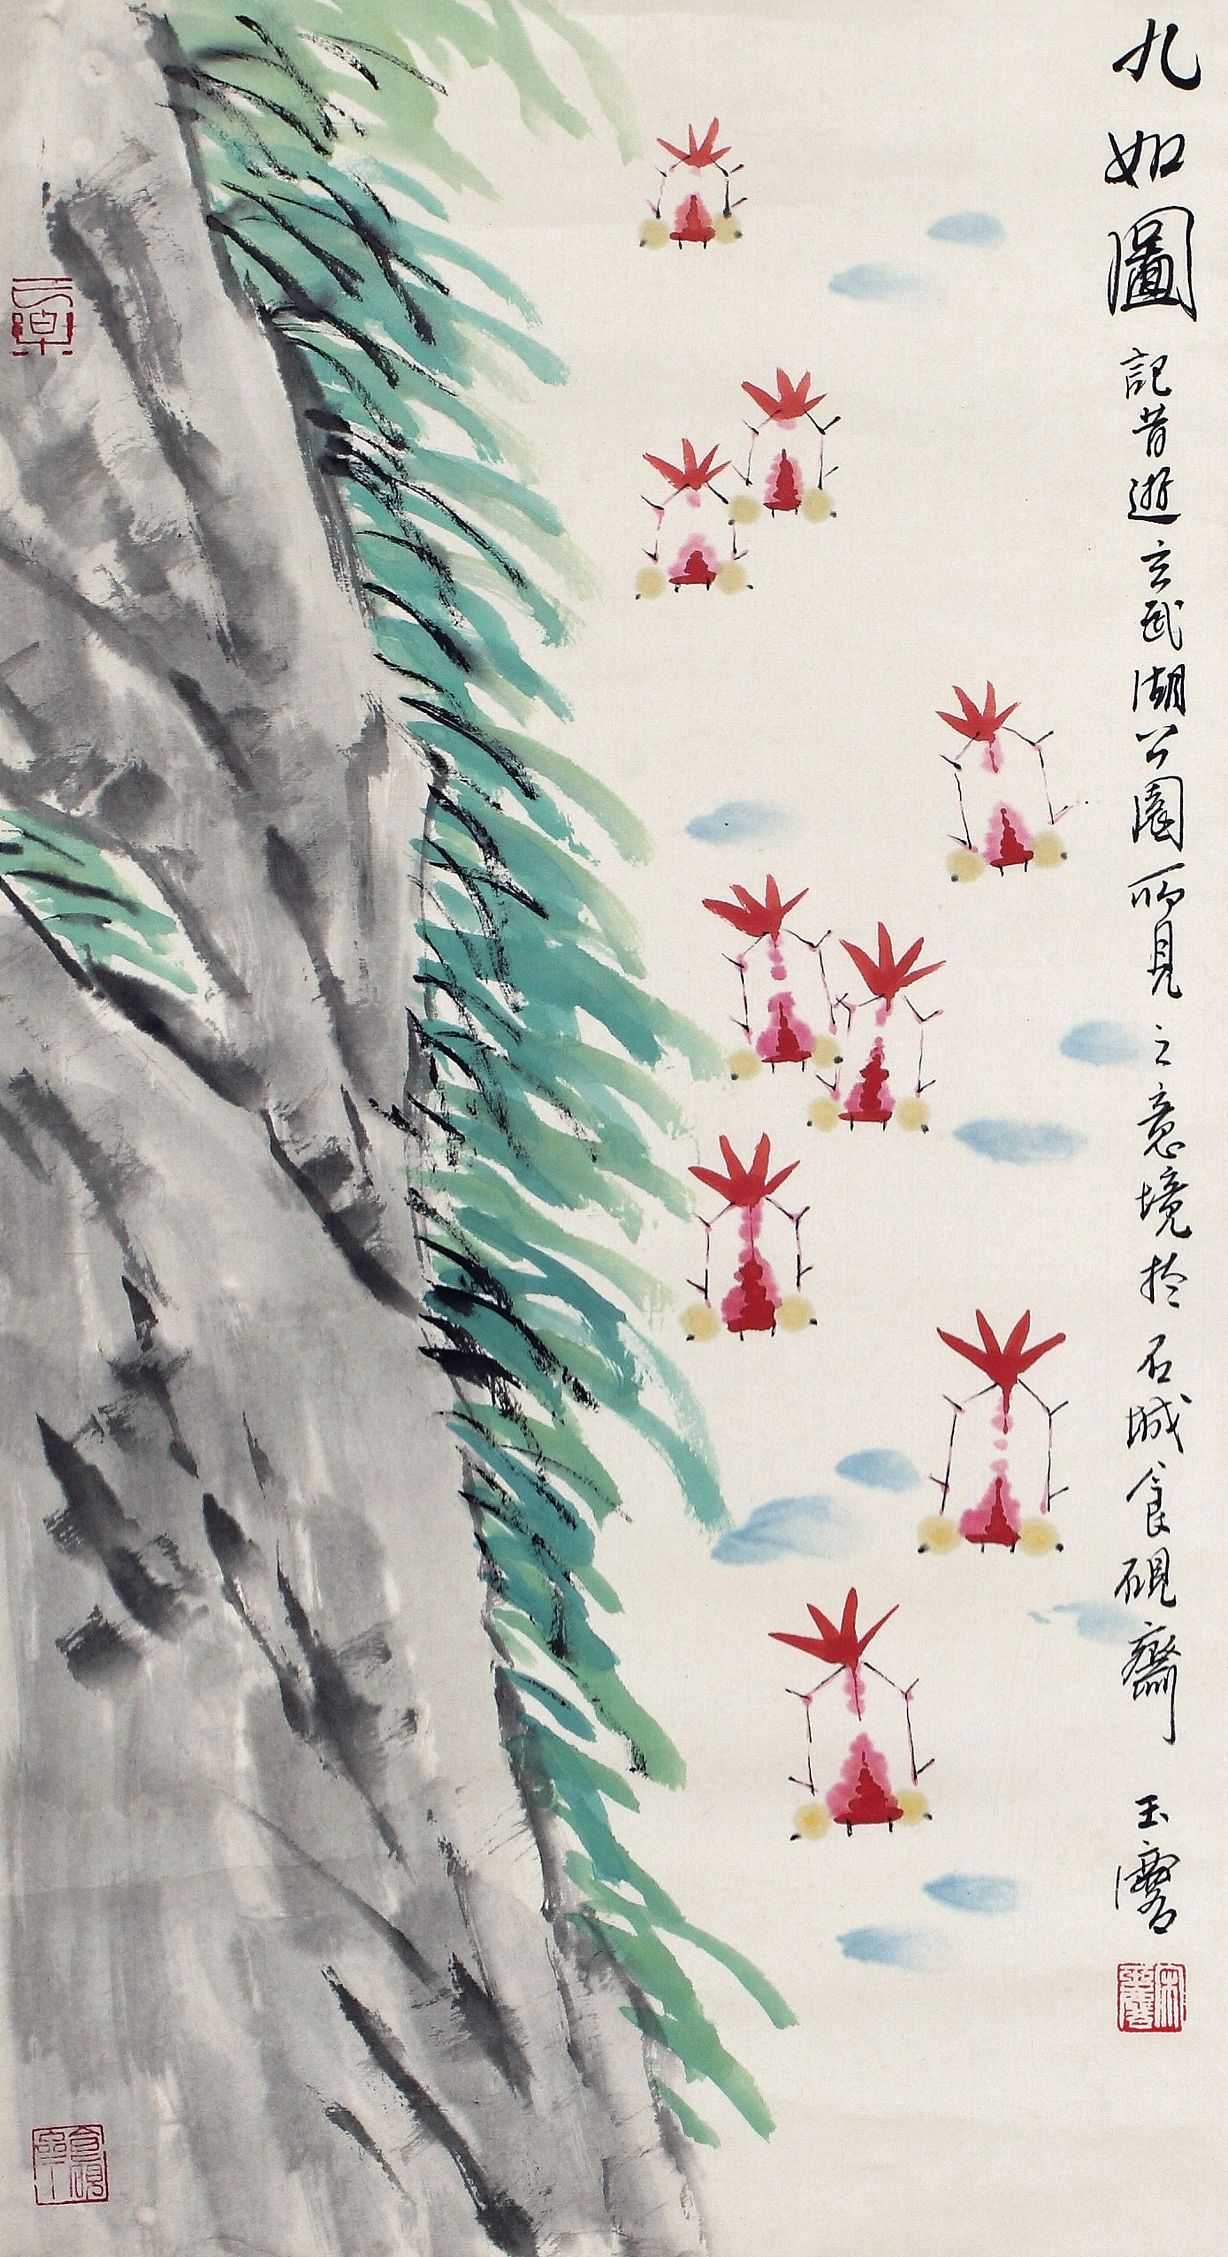 九如圖
記昔遊玄武湖公園所見之意境於石城食硯齋
玉麐